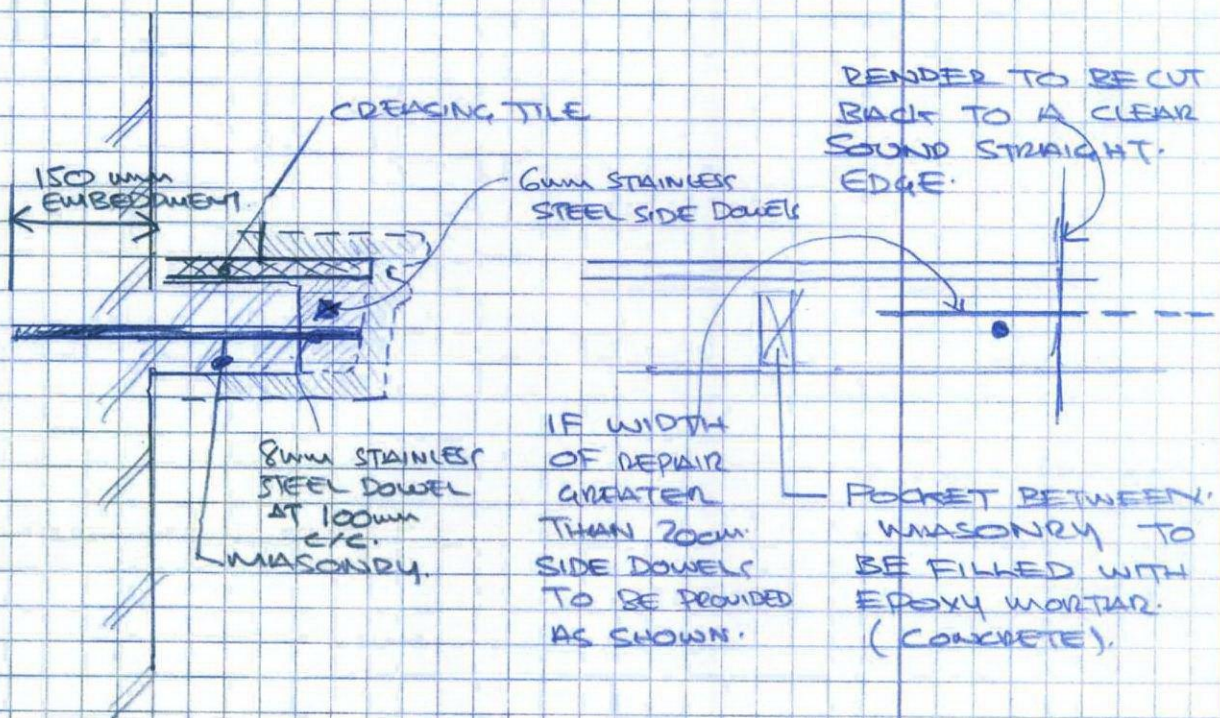 CREASING TILE
150 mm
EMBEDMENT.
6mm STAINLESS
STEEL SIDE DOWELS
RENDER TO BE CUT
BACK TO A CLEAR
SOUND STRAIGHT.
EDGE.
8mm STAINLESS
STEEL DOWEL
AT 100mm
C/C.
MASONRY.
IF WIDTH
OF REPAIR
GREATER
THAN 20cm.
SIDE DOWELS
TO BE PROVIDED
AS SHOWN.
POCKET BETWEEN.
MASONRY TO
BE FILLED WITH
EPOXY MORTAR.
(CONCRETE).